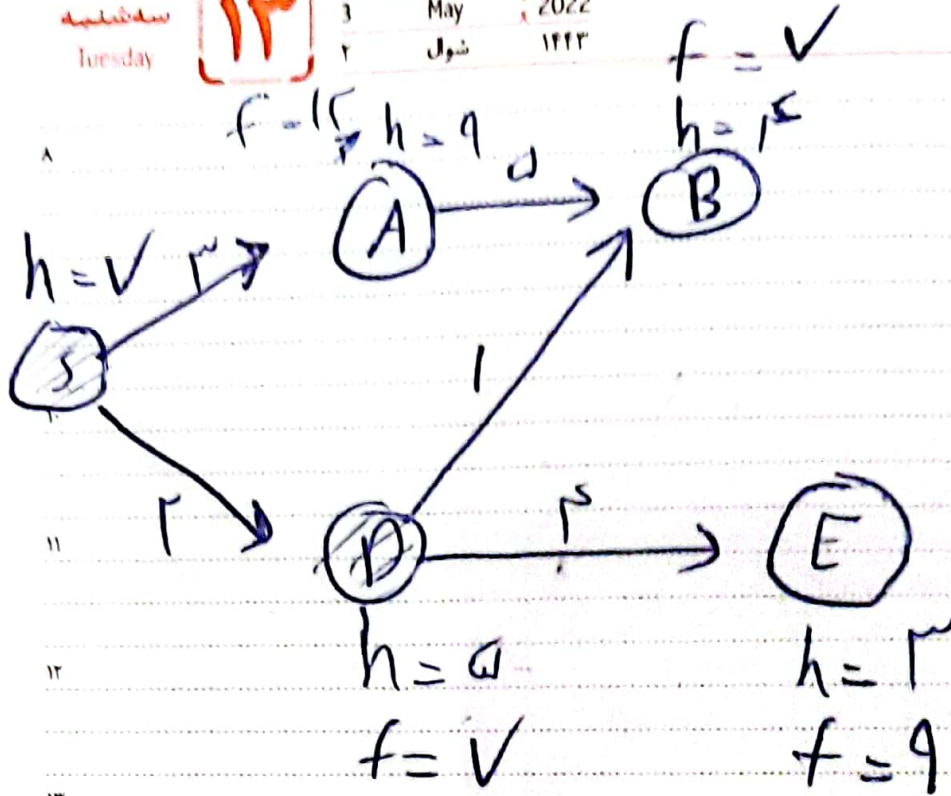 سه‌شنبه
Tuesday
۱۳
3 May 2022
۲ شوال ۱۴۴۳
f = ۷
f = ۱۲ h = ۹
h = ۴
۸
۵
A
B
h = ۷
۳
S
۱
۲
۴
۱۱
D
E
۱۲
h = ۵
h = ۳
f = ۷
f = ۹